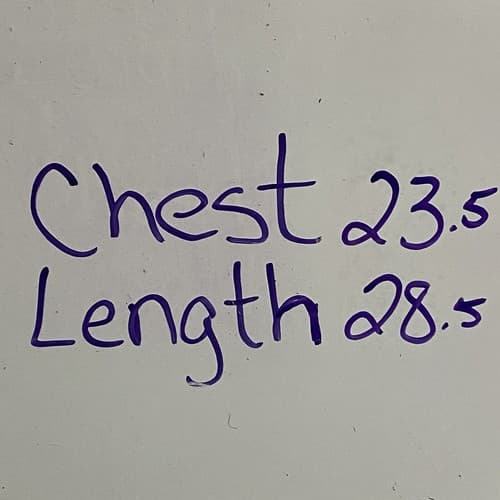 Chest 23.5
Length 28.5